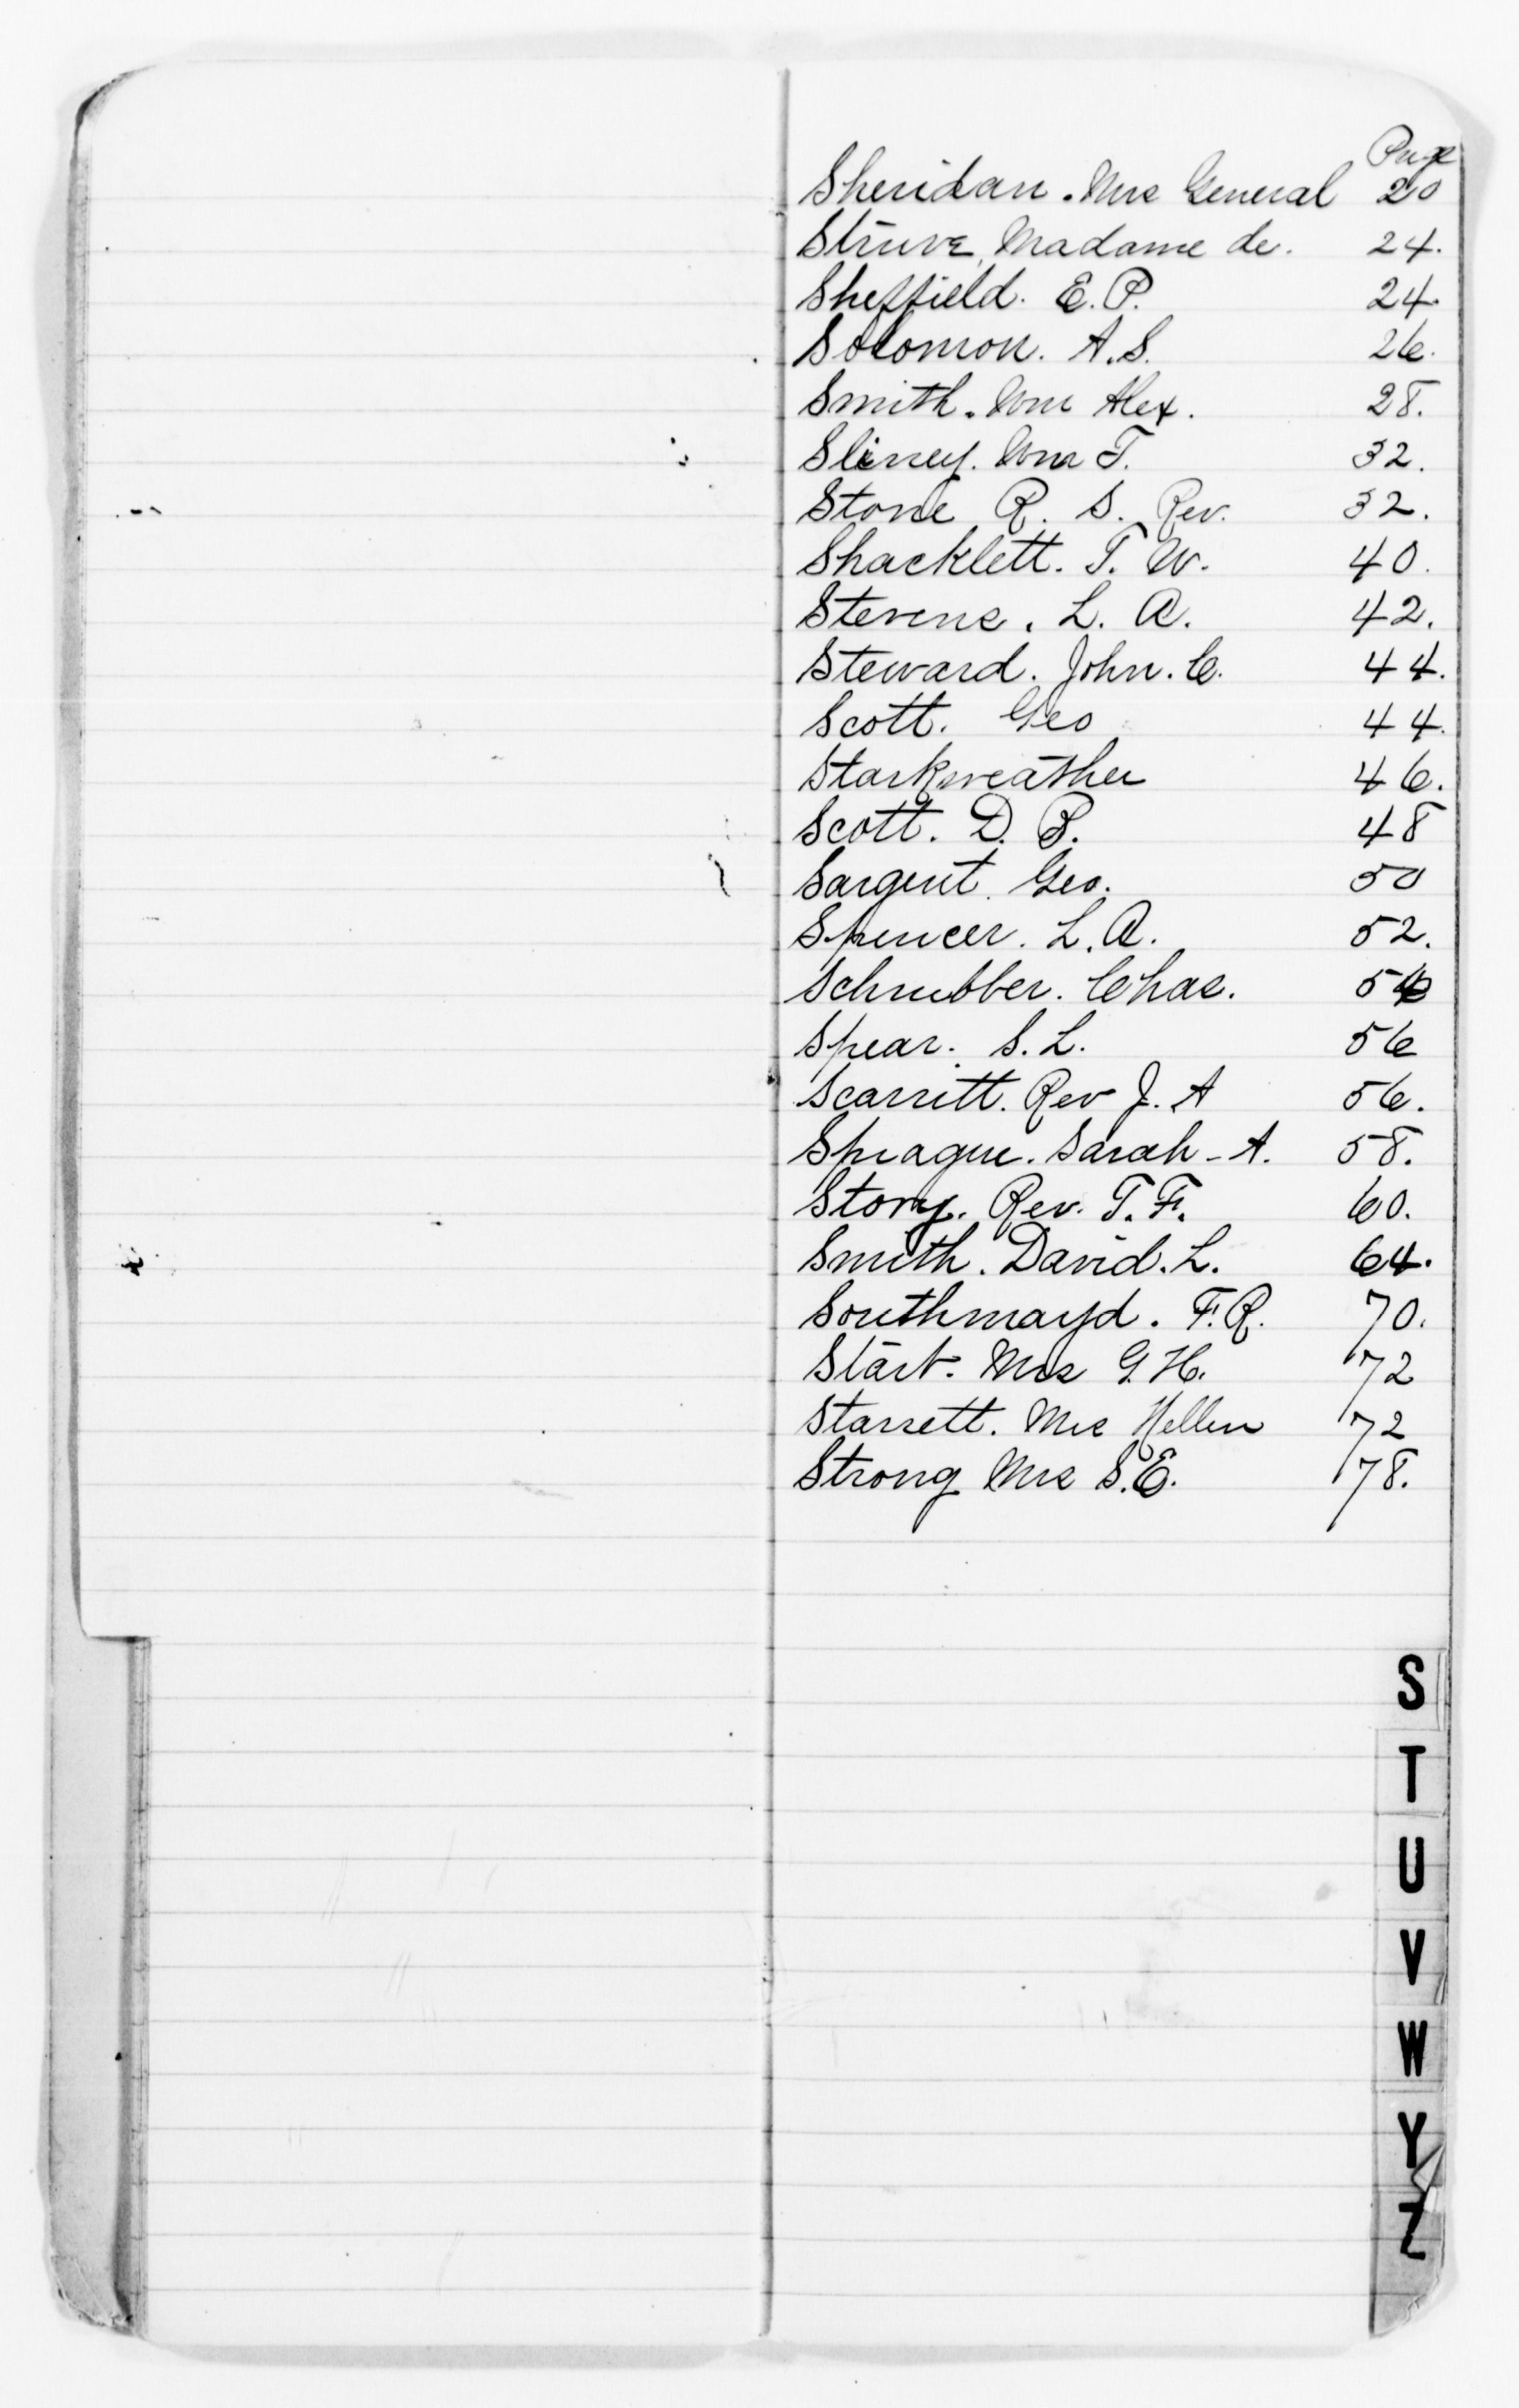 Page
Sheridan. Mrs General 20
Struve, Madame de. 24.
Sheffield. E. P. 24.
Solomon. A. S. 26.
Smith. Wm Alex. 28.
Sliney. Wm T. 32.
Stone R. S. Rev. 32.
Shacklett. T. W. 40.
Stevens. L. A. 42.
Steward. John. C. 44.
Scott. Geo 44.
Starkweather 46.
Scott. D. B. 48
Sargent. Geo. 50
Spencer. L. A. 52.
Schnubber. Chas.
Spear. S. L. 56
Scarritt. Rev J. A 56.
Sprague. Sarah - A. 58.
Story. Rev. T. F. 60.
Smith. David. L. 64.
Southmayd. F. R. 70.
Start. Mrs G. H. 72
Starrett. Mrs Hellen 72
Strong Mrs S. E. 78.
S
T
U
V
W
Y
Z